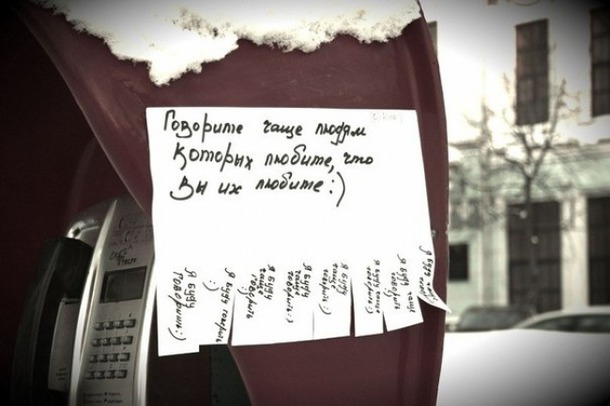 Говорите чаще людям
которых любите, что
вы их любите :)
я буду
говорить :)
я буду говорить
:)
я буду
чаще
говорить
я буду
чаще
говорить :)
я буду
чаще
говорить :)
я буду чаще
говорить :)
я буду чаще
говорить
я буду